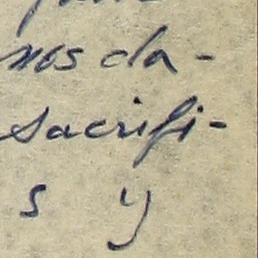 nos da-
sacrifi-
s y